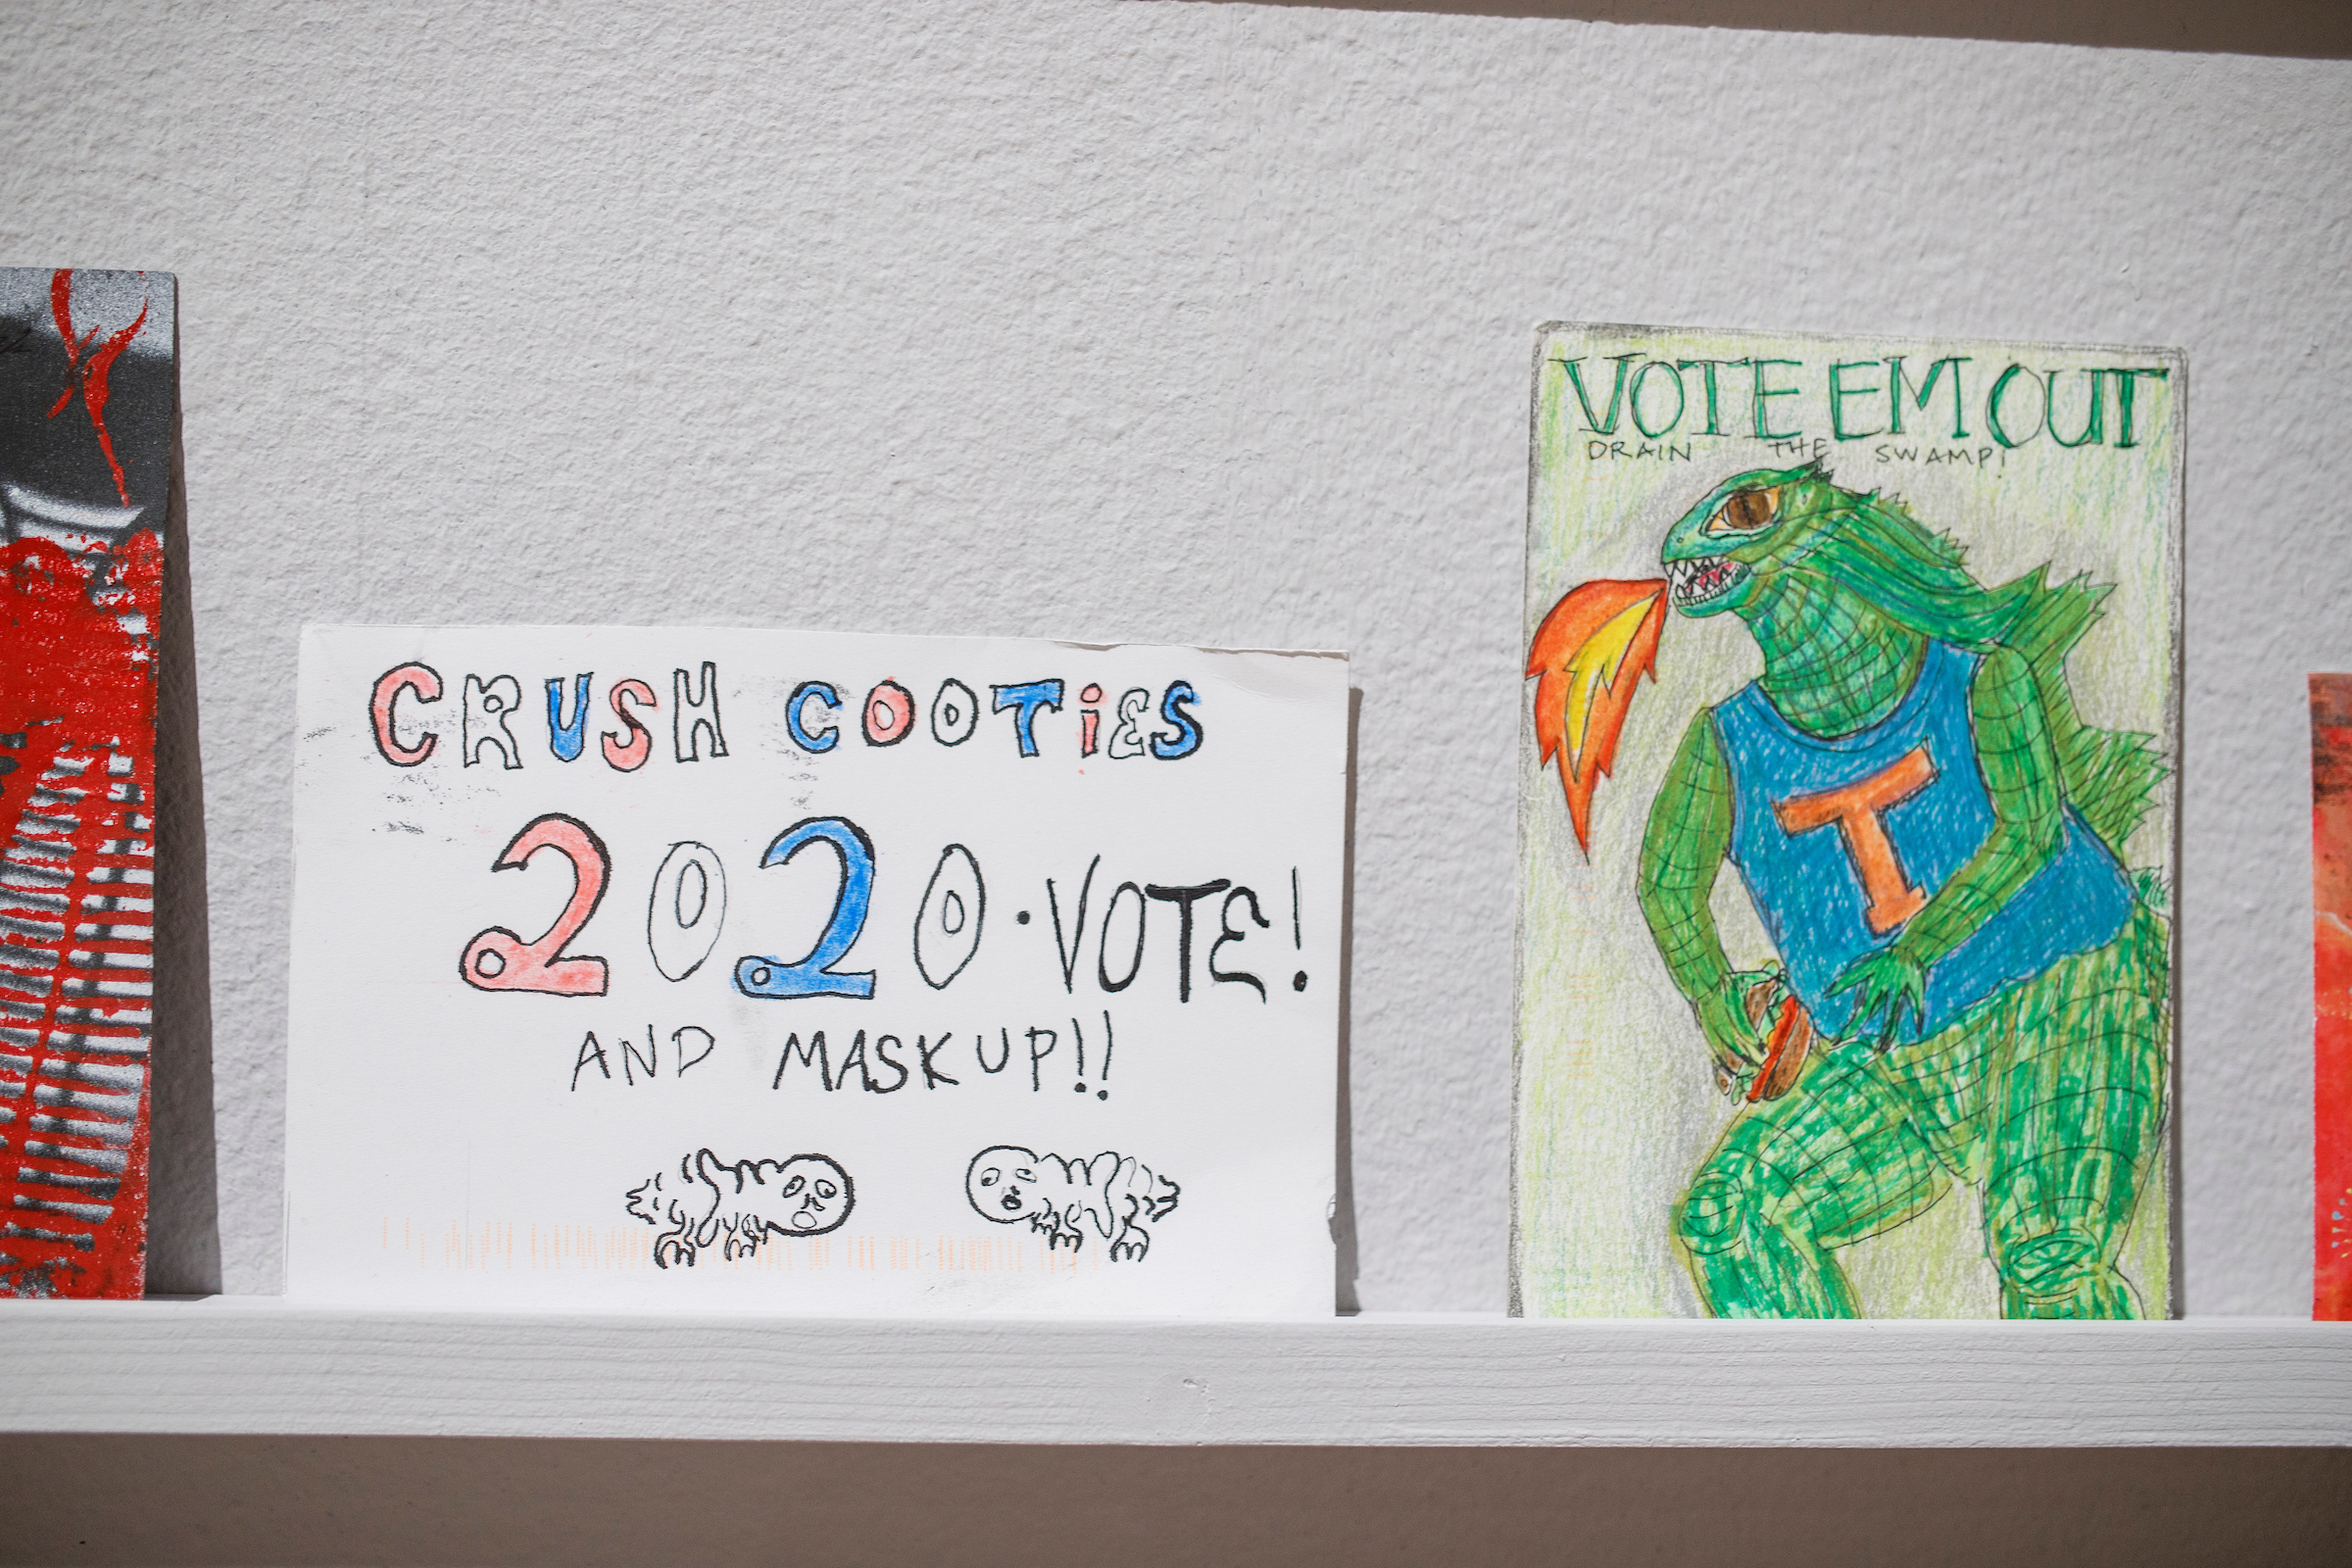 CRUSH COOTiES
2020 · VOTE!
AND MASK UP!!
VOTE EM OUT
DRAIN THE SWAMP!
T